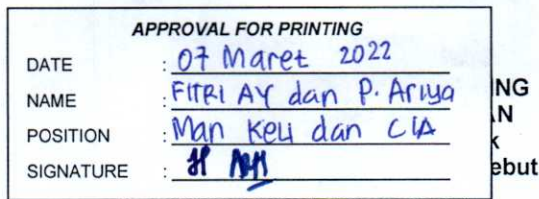 APPROVAL FOR PRINTING
DATE : 07 Maret 2022
NAME : FITRI AY dan P. Ariya
POSITION : Man Keu dan CIA
SIGNATURE :
ING
AN
k
ebut